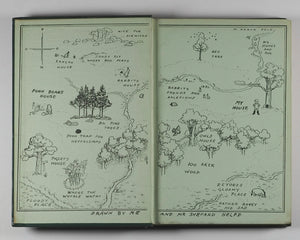 NICE FOR
PICNICKS
BIG
STONES
AND
ROX
BEE
TREE
SANDY PIT
WHERE ROO PLAYS
HOUSE
RABBITS
HOUSE
POOH BEARS
HOUSE
MY
HOUSE
SIX PINE
TREES
POOH TRAP FOR
HEFFALUMPS
OWLS
HOUSE
PIGLETS
HOUSE
100 AKER
WOOD
WHERE THE
WOOZLE WASNT
FLOODY
PLACE
EEYORES
GLOOMY
PLACE
RATHER BOGGY
AND SAD
DRAWN BY ME
AND MR SHEPARD HELPD